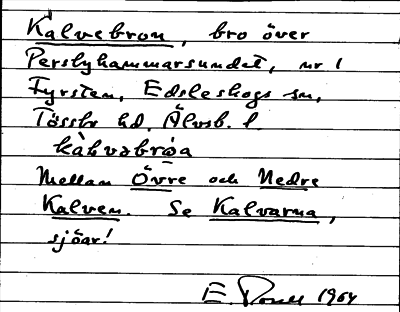 Kalvebron, bro över
Perstyhammarsundet, nr 1
Fyrsten, Edsleskogs sn,
Tössbo hd. Älvsb. l.
kàlvəbrəa
Mellan Övre och Nedre
Kalven. Se Kalvarna,
sjöar!
E. 1964